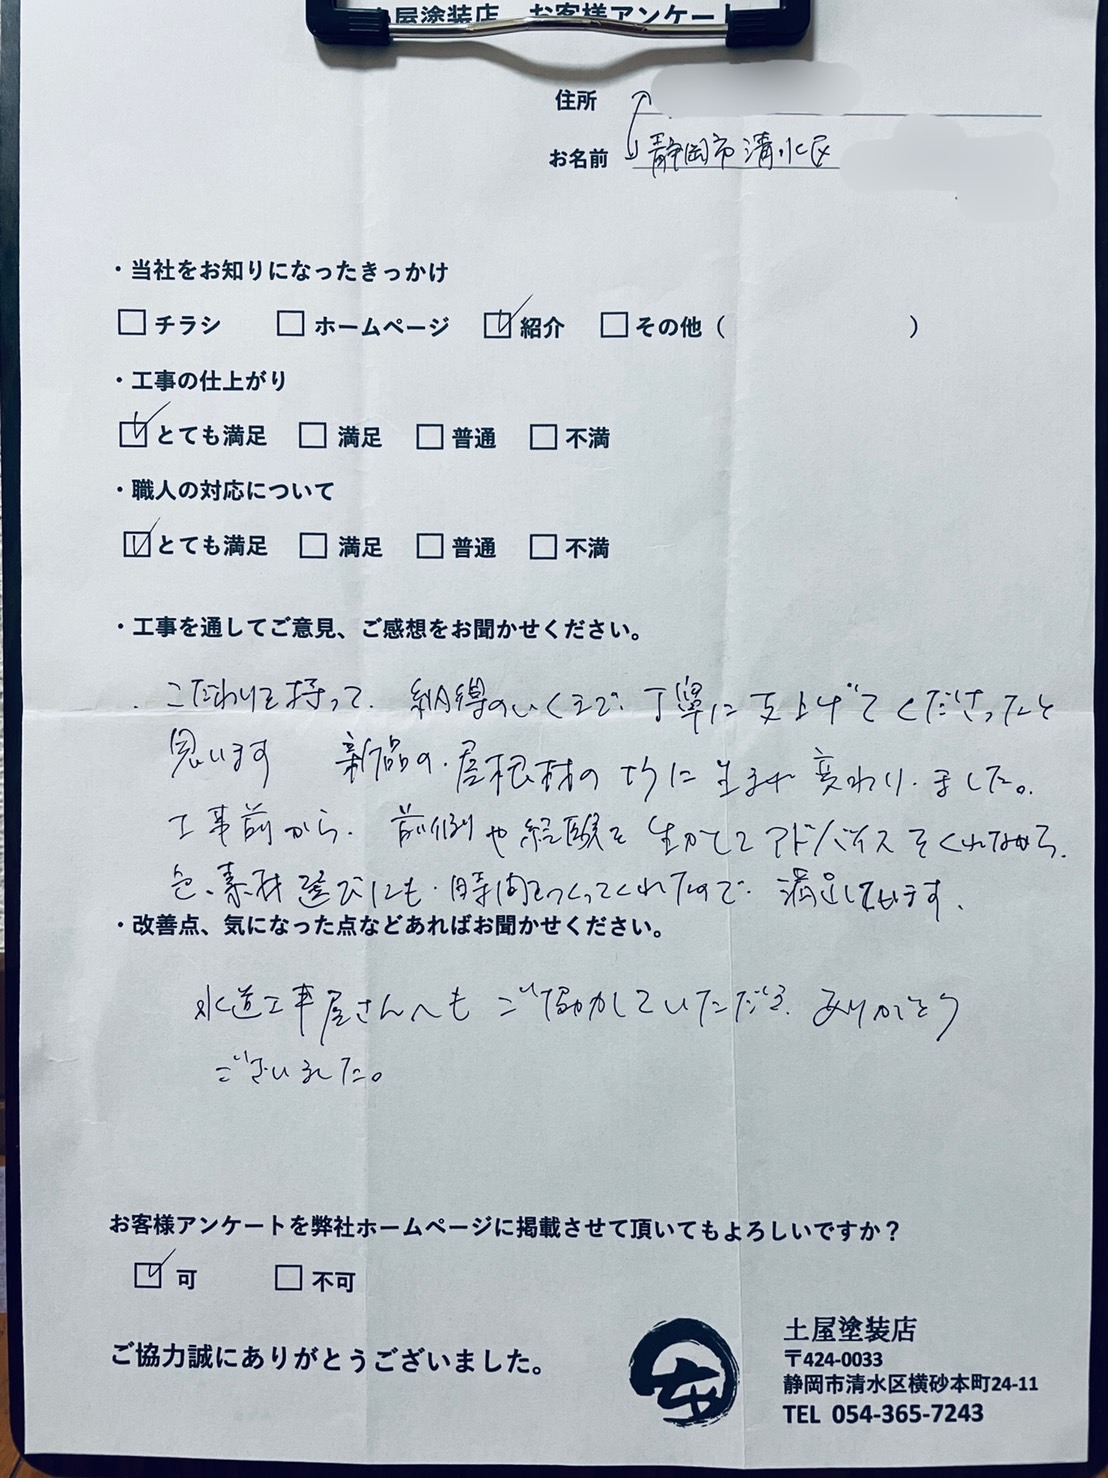 土屋塗装店 お客様アンケート
住所
お名前 静岡市清水区
・当社をお知りになったきっかけ
チラシ ホームページ 紹介 その他（ ）
・工事の仕上がり
とても満足 満足 普通 不満
・職人の対応について
とても満足 満足 普通 不満
・工事を通してご意見、ご感想をお聞かせください。
こだわりを持って、納得のいくまで、丁寧に 支上げてくださったと
思います 新品の屋根材の 様に 生まれ変わりました。
工事前から、前例や経験を 生かして アドバイスをくれながら、
色、素材選びにも時間をつくってくれたので、満足しています。
・改善点、気になった点などあればお聞かせください。
水道工事屋さんへも ご協力していただき、ありがとう
ございました。
お客様アンケートを弊社ホームページに掲載させて頂いてもよろしいですか？
可 不可
ご協力誠にありがとうございました。
土屋塗装店
〒424-0033
静岡市清水区横砂本町24-11
TEL 054-365-7243